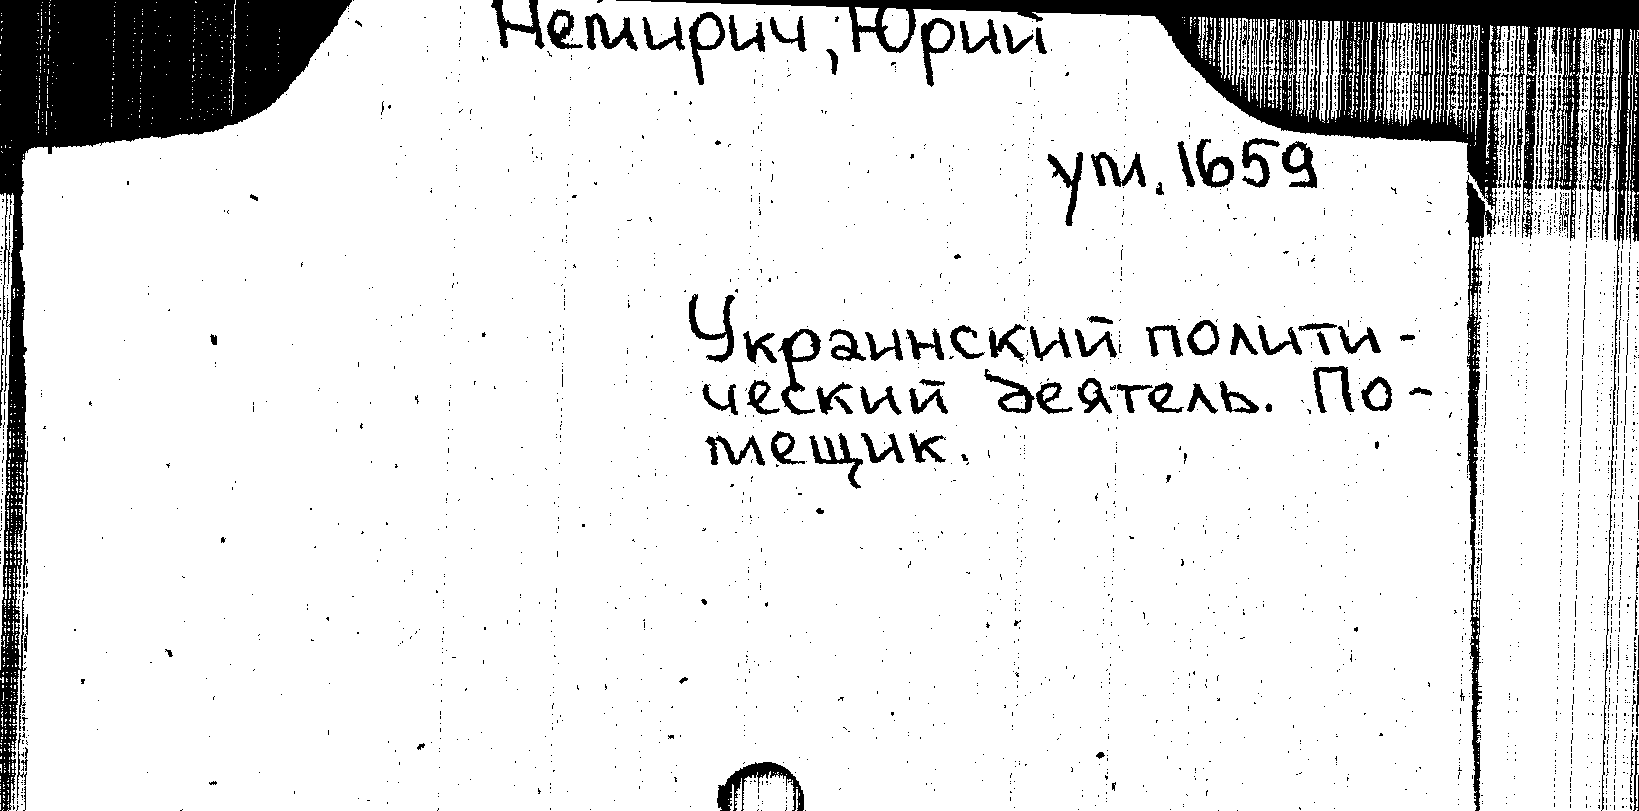 Немирич, Юрий
ум. 1659
Украинский полити-
ческий деятель. По-
мещик.